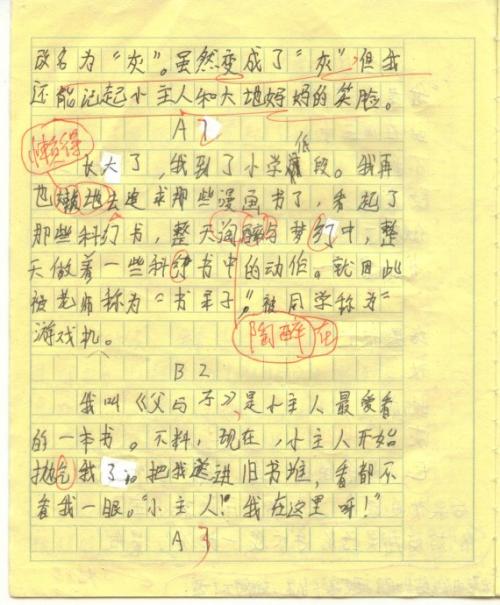 改名为“灰”。虽然变成了“灰”但我
还能记起小主人和大地妈妈的笑脸。
A 2
懒得
长大了，我到了小学低段。我再
也懒地去追求那些漫画书了，看起了
那些科幻书，整天陶醉与梦幻中，整
天做着一些科幻书中的动作。就因此
被老师称为“书呆子”，被同学称为“
游戏机。
陶醉在
B 2
我叫《父与子》，是小主人最爱看
的一本书。不料，现在，小主人开始
抛弃我了。把我送进旧书堆，看都不
看我一眼。“小主人！我在这里呀！”
A 3